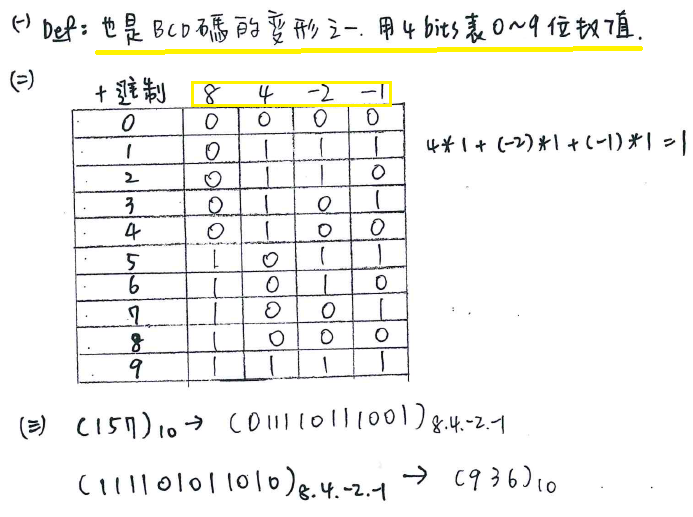 (一) Def: 也是BCD碼的变形之一. 用4 bits表0~9位数值.
(二)
十進制 8 4 -2 -1
0 0 0 0 0
1 0 1 1 1 4*1+(-2)*1+(-1)*1=1
2 0 1 1 0
3 0 1 0 1
4 0 1 0 0
5 1 0 1 1
6 1 0 1 0
7 1 0 0 1
8 1 0 0 0
9 1 1 1 1
(三) (157)10 → (011110111001)8.4.-2.-1
(111101011010)8.4.-2.-1 → (936)10